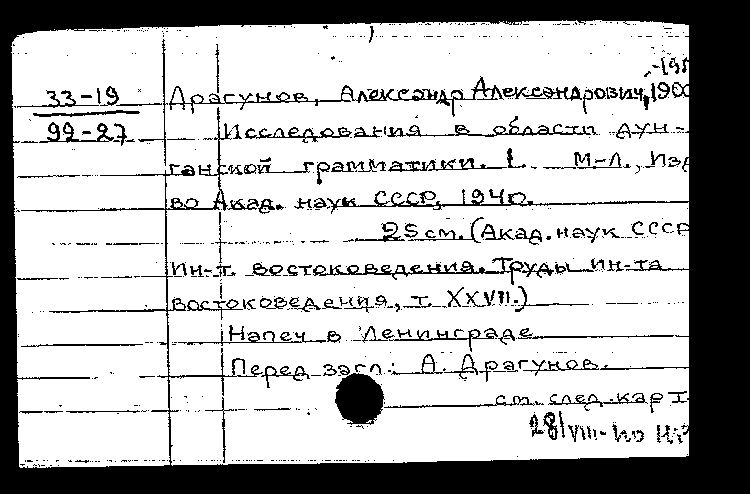 -195
33-19 Драгунов, Александр Александрович, 1900
99-27 Исследования в области дун-
ганской грамматики. I. М-Л., Изд
во Акад. наук СССР, 1940.
25 см. (Акад. наук СССР
Ин-т. востоковедения. Труды ин-та
востоковедения, т. XXVII.)
Напеч в Ленинграде
Перед загл: А. Драгунов.
см. след. кар I
28/VIII-